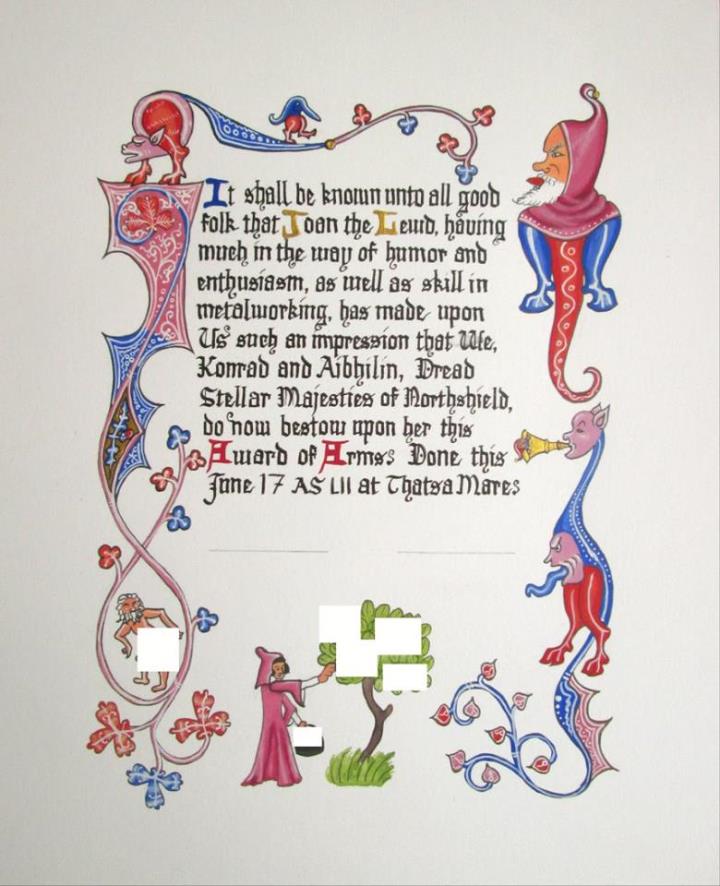 It shall be known unto all good
folk that Joan the Lewd, having
much in the way of humor and
enthusiasm, as well as skill in
metalworking, has made upon
Us such an impression that We,
Konrad and Aibhilin, Dread
Stellar Majesties of Northshield,
do now bestow upon her this
Award of Armss Done this
June 17 AS LII at Thatsa Mares